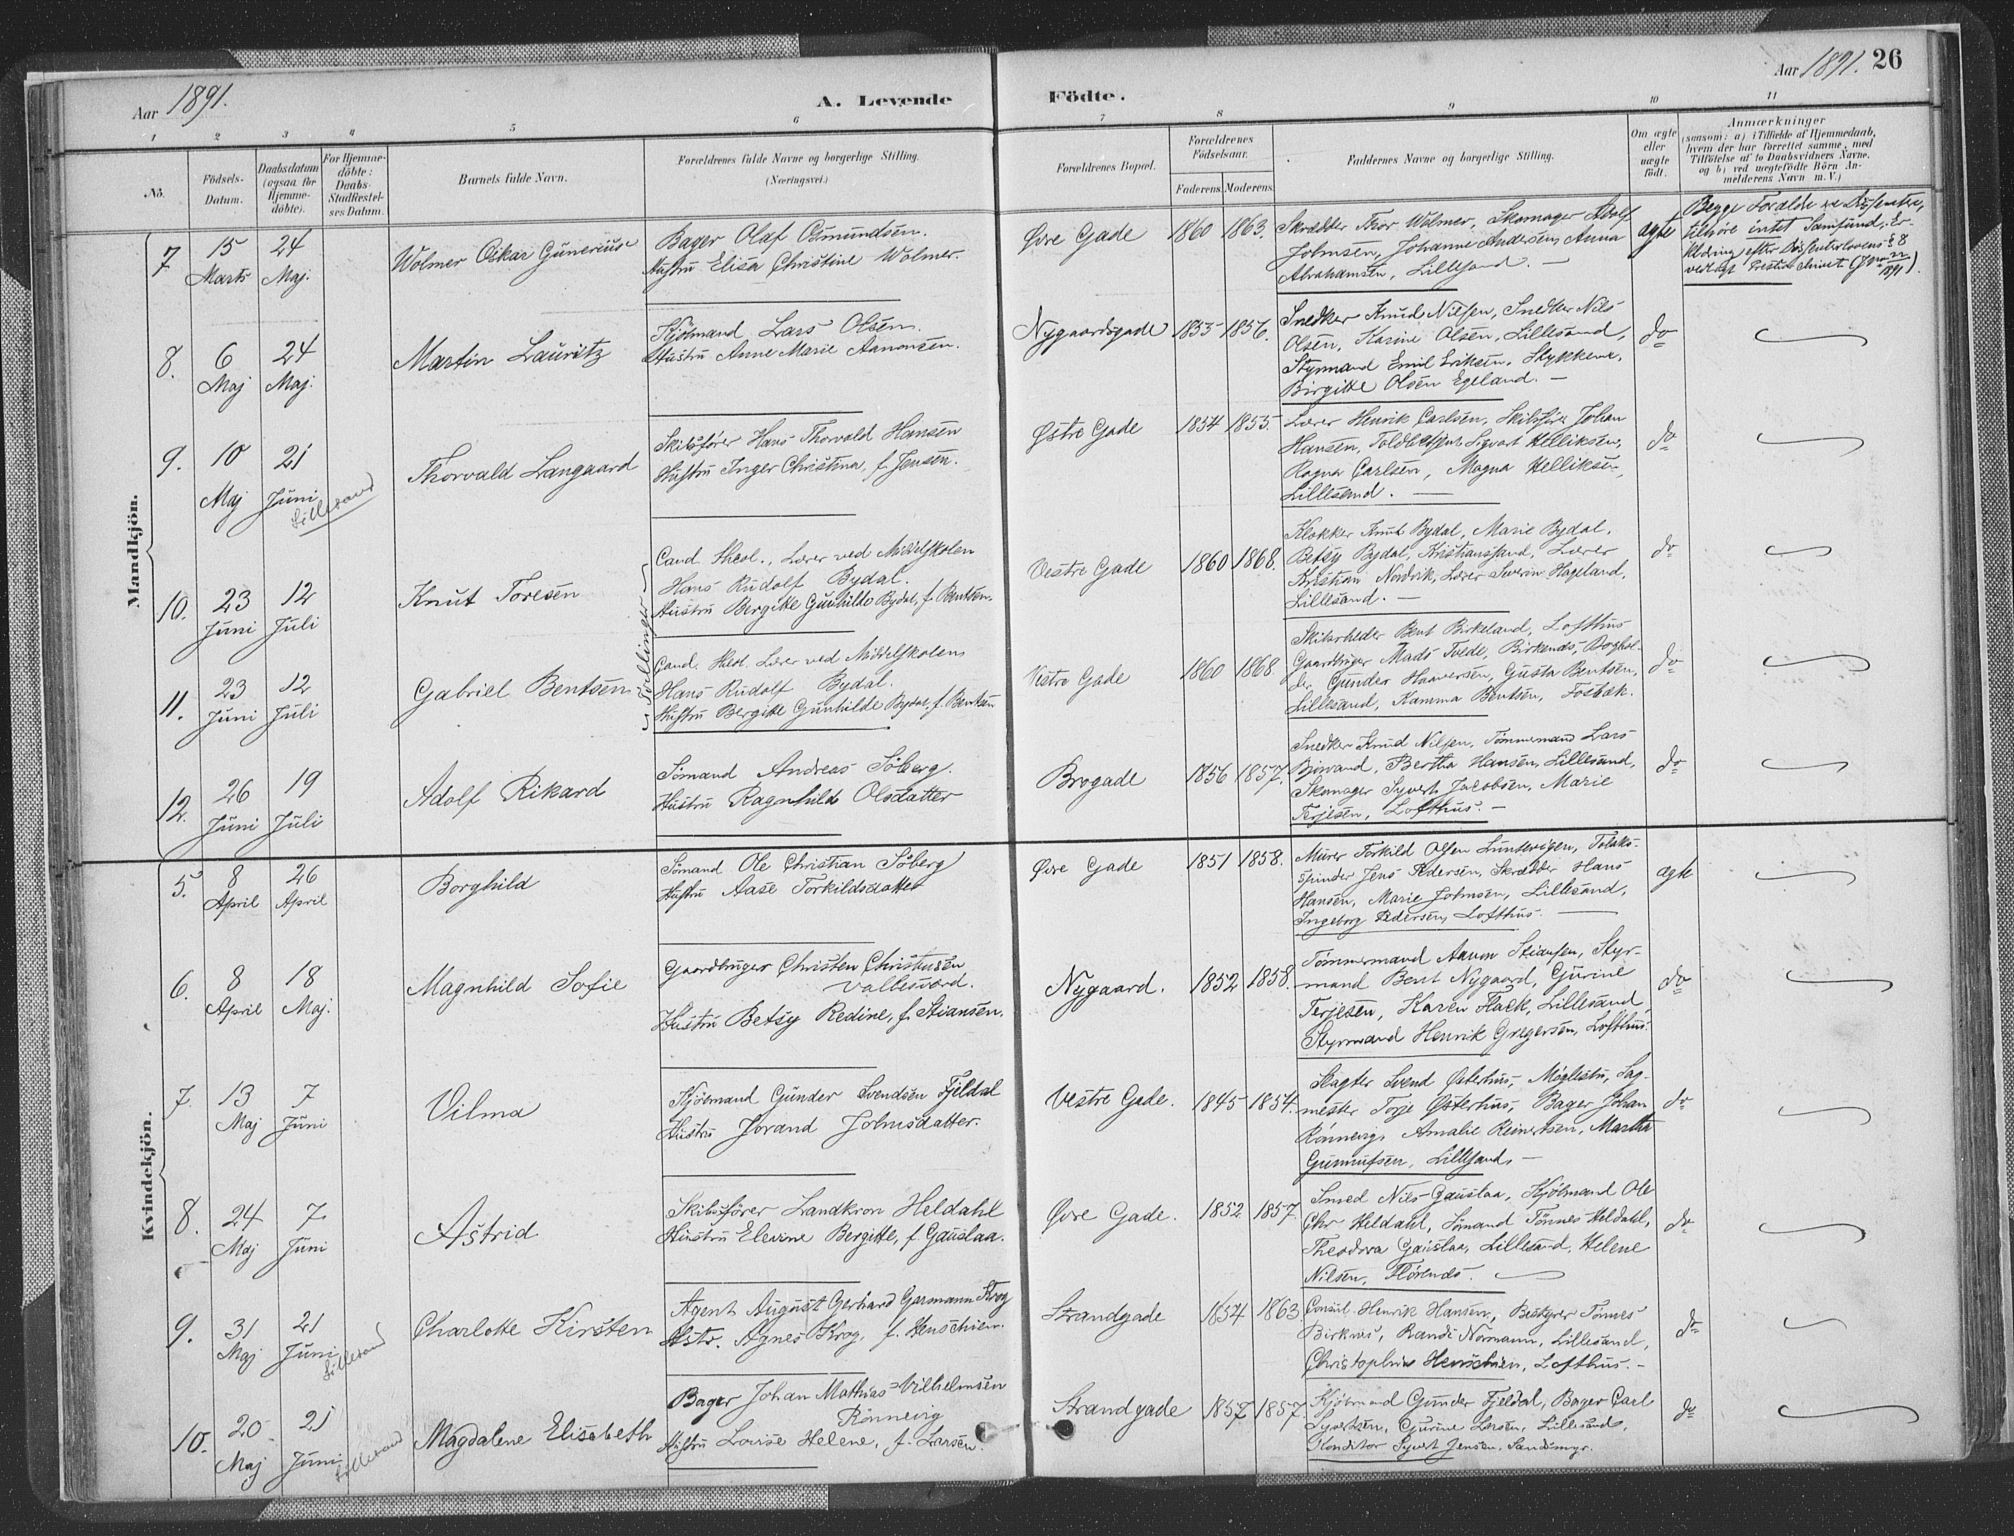 Aar 1891.
A. Levende
Födte.
Aar 1891. 26
1 2 3 4 5 6 7 8 9 10 11
No.
Födsels-
Datum.
Daabsdatum
(ogsaa for
Hjemme-
döbte).
For Hjemme-
döbte:
Daabs-
Stadfæstel-
ses Datum.
Barnets fulde Navn.
Forældrenes fulde Navne og borgerlige Stilling.
(Næringsvei.)
Forældrenes Bopæl.
Forældrenes
Födselsaar.
Faderens. Moderens.
Faddernes Navne og borgerlige Stilling.
Om ægte
eller
uægte
født.
Anmærkninger
(saasom: a) i Tilfælde af Hjemmedaab,
hvem der har forrettet samme, med
Tilföielse af to Daabsvidners Navne,
og b) ved uægtefödte Börn An-
melderens Navn m. V.)
Mandkjön.
7
15
Marts
24
Maj.
Wolmer Oskar Gunerius
Bager Olaf Osmundsen.
Hustru Elisa Christine Wolmer.
Øvre Gade
1860 1863.
Skrædder Thor Wolmer, Skomager Adolf
Johnsen, Johanne Andersen, Anna
Abrahamsen, Lillesand. —
ægte
Begge Forældre ere Dissentere,
tilhøre intet Samfund, Er-
klæring efter Dissenterlovens § 8
vedlagt
8.
6
Maj
24
Maj.
Martin Lauritz
Kjöbmand Lars Olsen.
Hustru Anne Marie Aanonsen.
Nygaardsgade
1855 1856.
Snedker Knud Nilsen, Snedker Nils
Olsen, Karine Olsen, Lillesand,
Styrmand Emil Eriksen, Stykkene,
Birgitte Olsen Egeland. —
do
9.
10
Maj
21
Juni
Lillesand
Thorvald Langaard
Skibsfører Hans Thorvald Hansen
Hustru Inger Christina, f. Jensen.
Østre Gade
1854 1855.
Lærer Henrik Carlsen, Skibsfører Johan
Hansen, Toldbetjent Sigvart Helliksen,
Ragna Carlsen, Magna Helliksen,
Lillesand. —
do
10.
23
Juni
12
Juli
Knut Toresen
Tvillinger
Cand. theol., Lærer ved Middelskolen
Hans Rudolf Bydal.
Hustru Bergitte Gunhilde Bydal, f. Bentsen.
Vestre Gade
1860 1868.
Klokker Knut Bydal, Marie Bydal,
Betsy Bydal, Kristianssand, Lærer
Kristian Nordvik, Lærer Severin Hageland,
Lillesand. —
do
11.
23
Juni
12
Juli
Gabriel Bentsen
Cand. theol. Lærer ved Middelskolen
Hans Rudolf Bydal.
Hustru Bergitte Gunhilde Bydal, f. Bentsen
Vestre Gade
1860 1868.
Skibsrheder Bent Birkeland, Lofthus
Gaardbruger Mads Tvede, Birkenæs, Boghol-
der Gunder Haaversen, Gusta Bentsen,
Lillesand, Kamma Bentsen, Fosbæk.
do
12.
26
Juni
19
Juli
Adolf Rikard
Sömand Andreas Söberg.
Hustru Ragnhild Olsdatter
Brogade
1856 1857.
Snedker Knud Nilsen, Tömmermand Lars
Bjorvand, Bertha Hansen, Lillesand,
Skomager Syvert Jacobsen, Marie
Terjesen, Lofthus. —
do
Kvindekjön.
5.
8
April
26
April
Borghild
Sömand Ole Christian Söberg
Hustru Aase Torkildsdatter
Øvre Gade
1851 1858.
Murer Torkild Olsen Luntevigen, Tobaks-
spinder Jens Pedersen, Skrædder Hans
Hansen, Marie Johnsen, Lillesand,
Ingeborg Pedersen, Lofthus. —
ægte
6.
8
April
18
Maj.
Magnhild Sofie
Gaardbruger Christen Christensen
Vallesværd.
Hustru Betsy Redine, f. Stiansen.
Nygaard.
1852 1858.
Tömmermand Aanon Stiansen, Styr-
mand Bent Nygaard, Gurine
Terjesen, Karen Flack, Lillesand,
Styrmand Henrik Gregersen, Lofthus.
do
7.
13
Maj
7
Juni
Vilma
Kjöbmand Gunder Svendsen Fjeldal
Hustru Jorand Johnsdatter.
Vestre Gade.
1845 1854.
Slagter Svend Østerhus, Möglestu, Sag-
mester Torje Østerhus, Bager Johan
Rönnevig, Amalie Reinertsen, Martha
Gunnufsen, Lillesand. —
do
8.
24
Maj
7
Juni
Astrid
Skibsförer Landkron Heldahl
Hustru Elevine Bergitte, f. Gauslaa.
Øvre Gade.
1852 1857
Smed Nils Gauslaa, Kjöbmand Ole
Chr Heldahl, Sömand Tönnes Heldahl,
Theodora Gauslaa, Lillesand, Helene
Nilsen,
do
9.
31
Maj
21
Juni
Lillesand
Charlotte Kirsten
Agent August Gerhard Garmann Krog
Hstr. Agnes Krog, f. Henschien.
Strandgade
1854 1863
Consul Henrik Hansen, Bestyrer Tönnes
Birknæs, Randi Normann, Lillesand,
Christopher Henschien, Lofthus. —
do
10.
20
Maj
21
Juni
Lillesand
Magdalene Elisabeth
Bager Johan Mathias Vilhelmsen
Rönnevig
Hustru Lovise Helene, f. Larsen.
Strandgade
1857 1857.
Kjöbmand Gunder Fjeldal, Bager Carl
Syvertsen, Gurine Larsen, Lillesand,
Konditor Syvert Jensen, Sandsmyr.
do